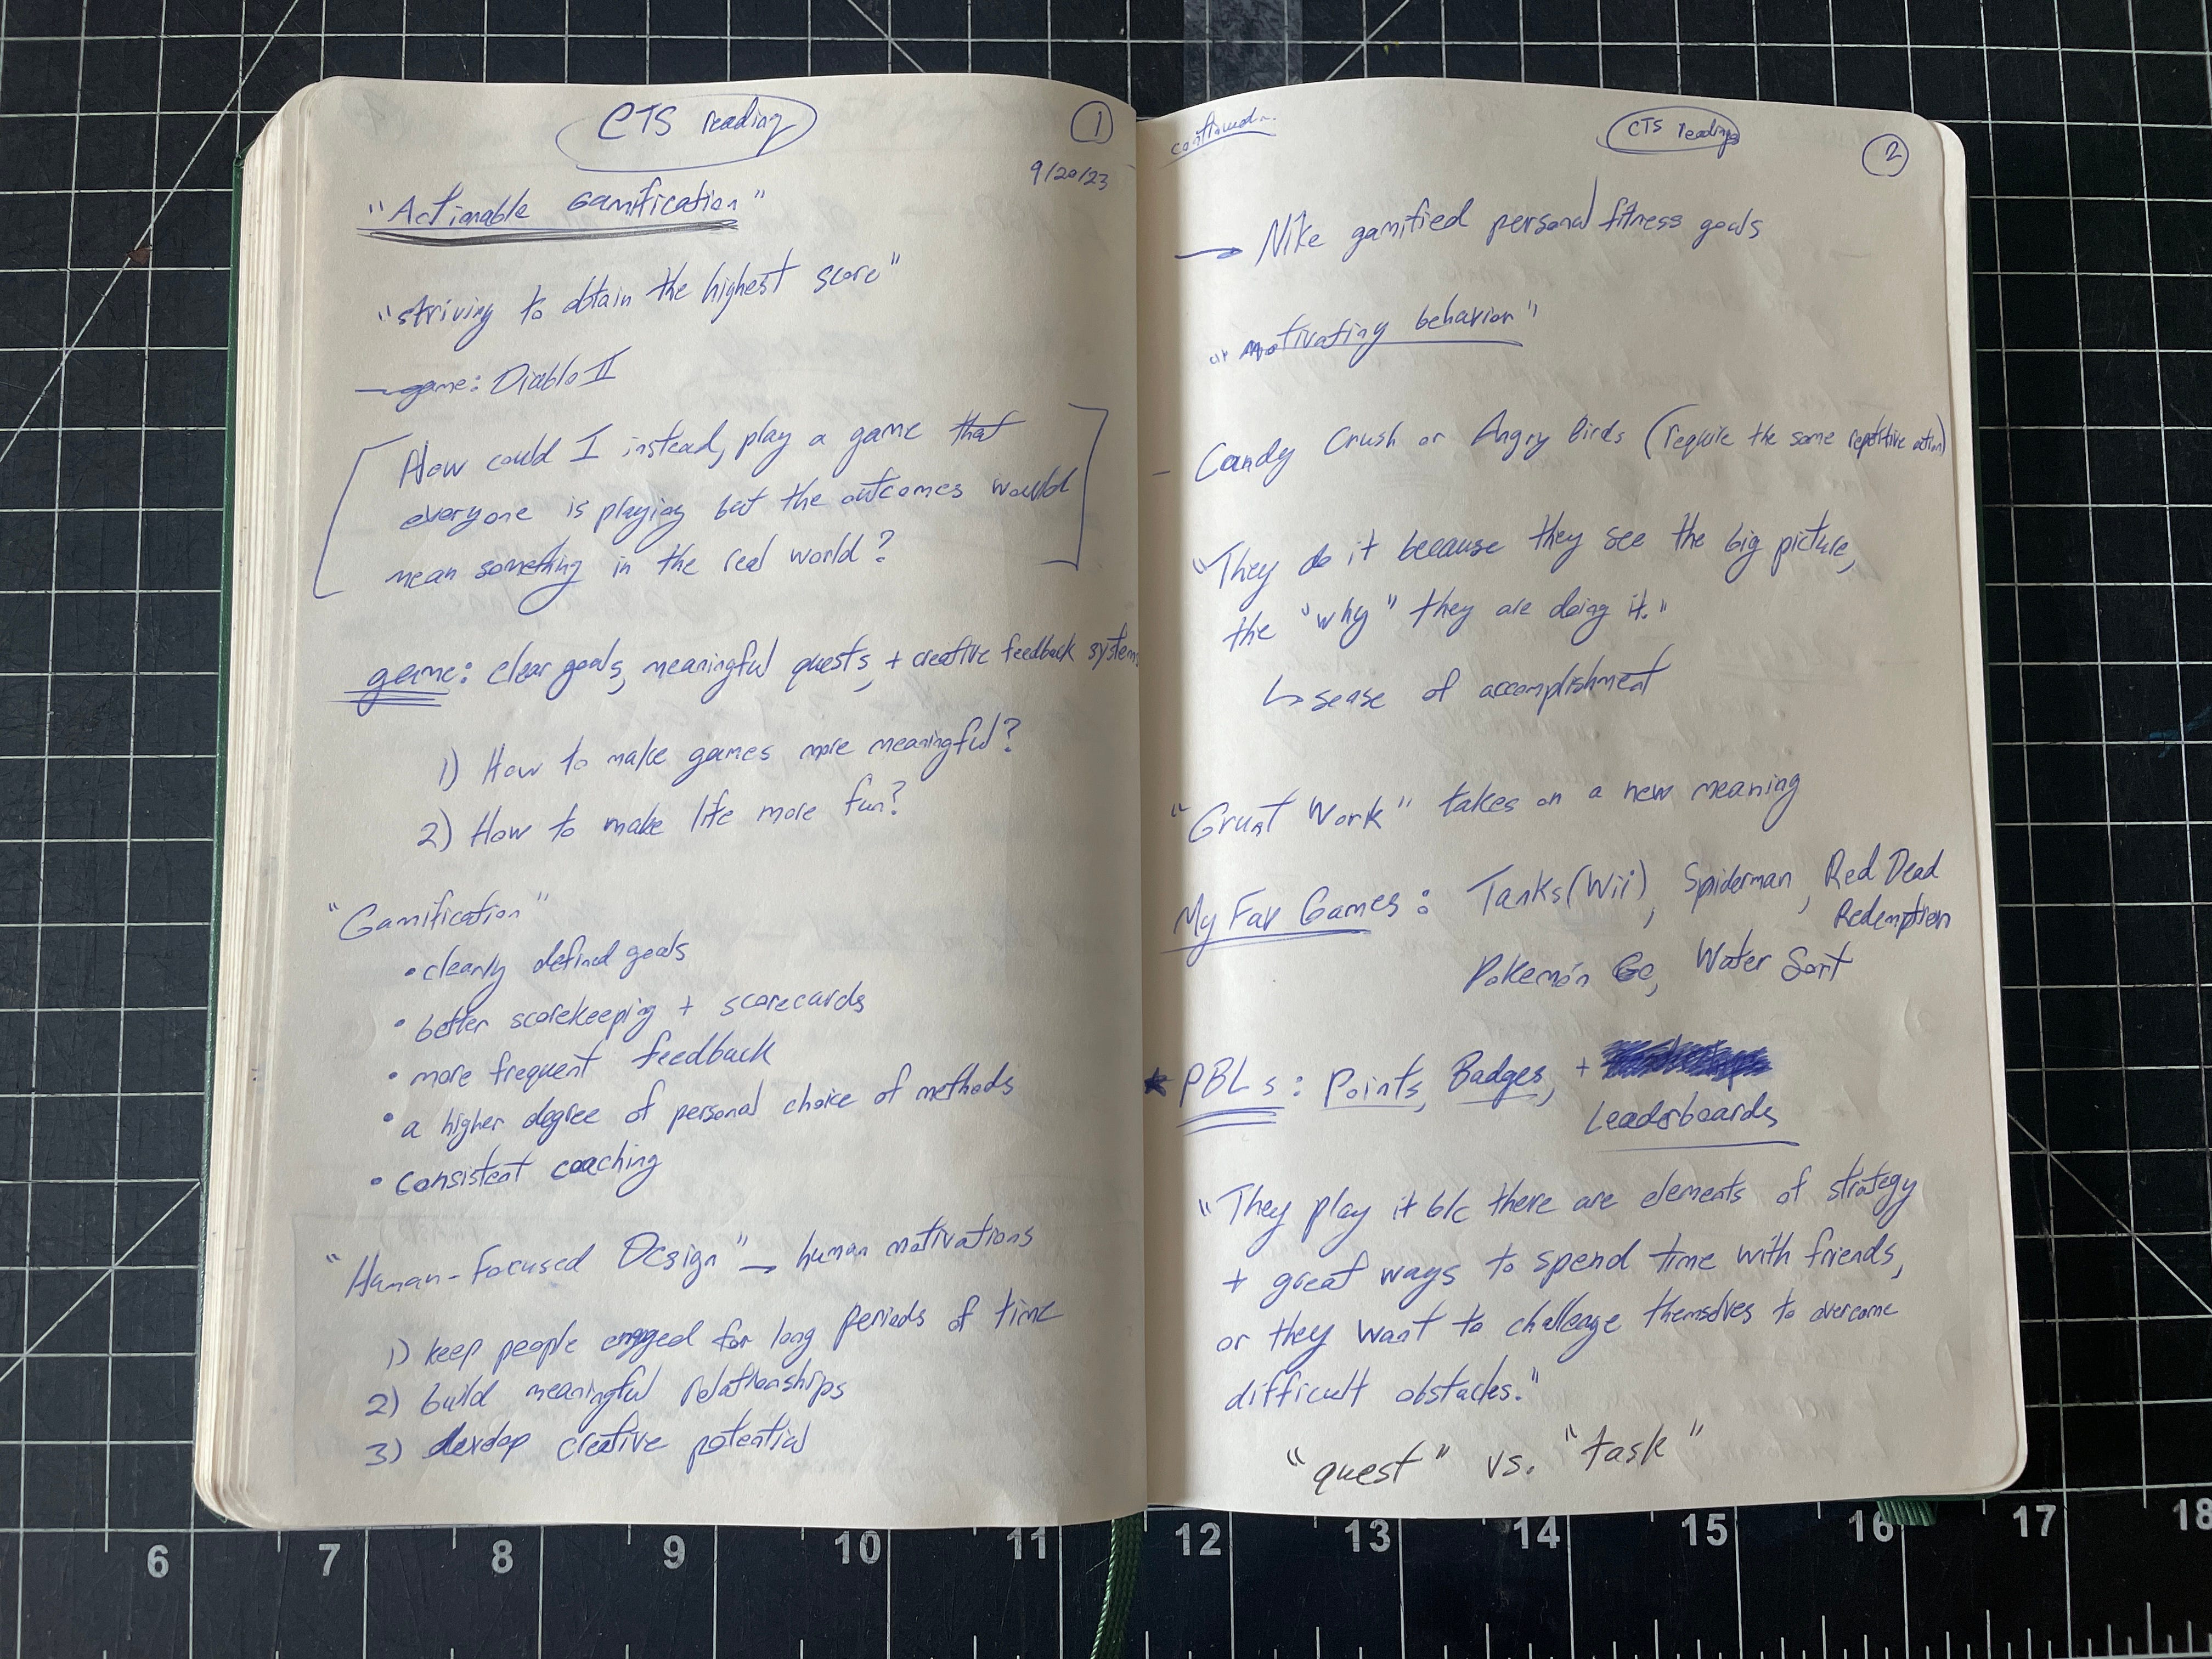 CTS reading
1
9/20/23
"Actionable Gamification"
"striving to obtain the highest score"
→ game: Diablo II
[How could I instead, play a game that
everyone is playing but the outcomes would
mean something in the real world?]
game: clear goals, meaningful quests, + creative feedback systems
1) How to make games more meaningful?
2) How to make life more fun?
"Gamification"
• clearly defined goals
• better scorekeeping + scorecards
• more frequent feedback
• a higher degree of personal choice of methods
• consistent coaching
"Human-Focused Design" → human motivations
1) keep people engaged for long periods of time
2) build meaningful relationships
3) develop creative potential
continued...
CTS readings
2
→ Nike gamified personal fitness goals
"motivating behavior"
- Candy Crush or Angry Birds (require the same repetitive action)
"They do it because they see the big picture,
the "why" they are doing it."
↳ sense of accomplishment
"Grunt Work" takes on a new meaning
My Fav Games: Tanks (Wii), Spiderman, Red Dead
Redemption
Pokemón Go, Water Sort
★ PBLs: Points, Badges, +
Leaderboards
"They play it b/c there are elements of strategy
+ great ways to spend time with friends,
or they want to challenge themselves to overcome
difficult obstacles."
"quest" vs. "task"
6 7 8 9 10 11 12 13 14 15 16 17 18